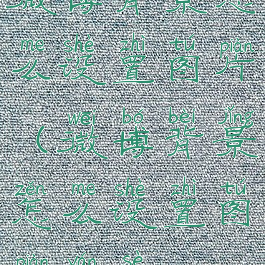 me shè zhì tú piàn
么设置图片
wēi bó bèi jǐng
（微博背景
zěn me shè zhì tú
怎么设置图